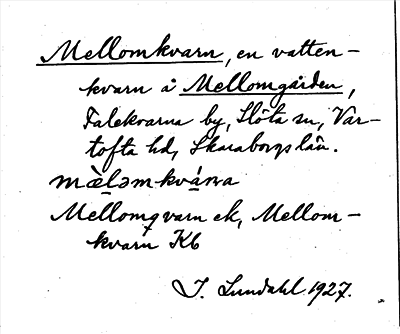 Mellomkvarn, en vatten-
kvarn å Mellomgården,
Falekvarna by, Slöta sn, Var-
tofta hd, Skaraborgs län.
mè̀ləm-kvá́ɳa
Mellomqvarn ek, Mellom-
kvarn Kb
I. Lundahl 1927.